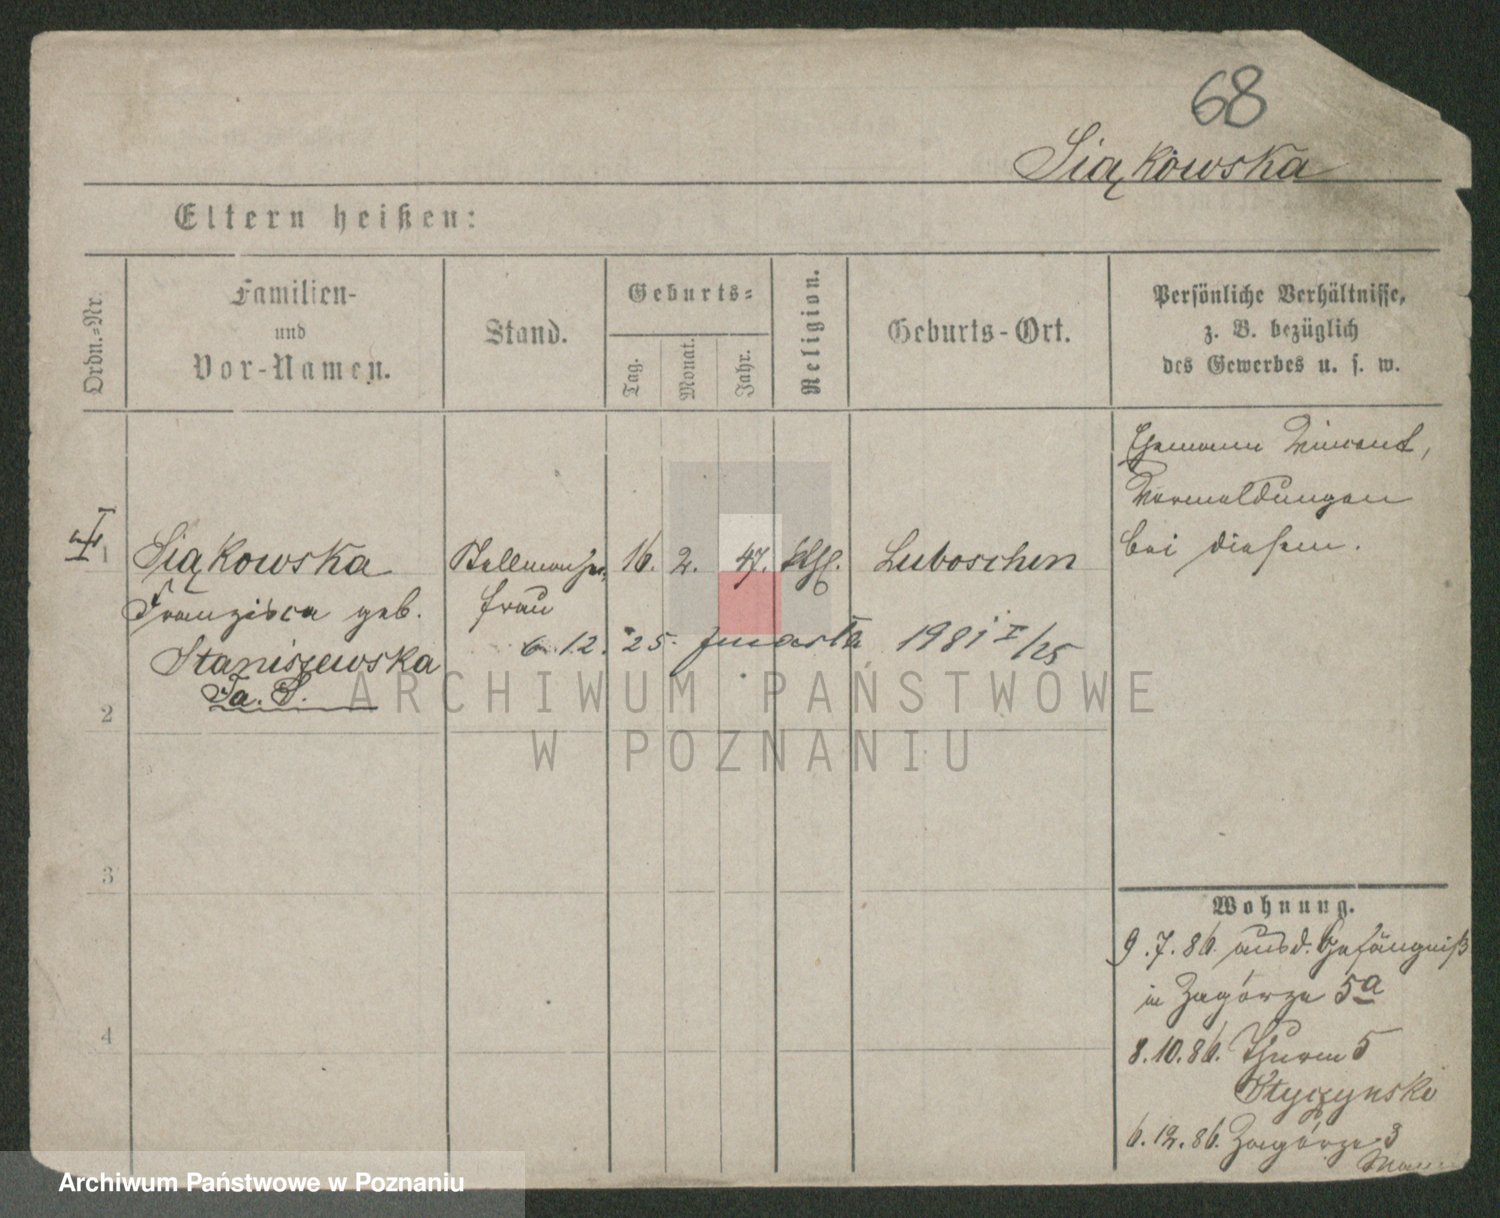 68
Siąkowska
Eltern heißen:
Ordn.-Nr.
Familien-
und
Vor-Namen.
Stand.
Geburts-
Tag.
Monat.
Jahr.
Religion.
Geburts-Ort.
Persönliche Verhältnisse,
z. B. bezüglich
des Gewerbes u. s. w.
Ehemann Vincent,
Vormeldungen
bei diesem.
1
Siąkowska
Franziska geb.
Staniszewska
Ta. S.
frau
16. 2. 47. kth.
Luboschen
6. 12. 25. zmarła 1981 I/25
2
3
4
Wohnung.
9.7.86. aus d. Gefängniß
in Zagórze 5a
8.10.86. Thurm 5
Styczynski
6.12.86. Zagórze 3
ARCHIWUM PAŃSTWOWE
W POZNANIU
Archiwum Państwowe w Poznaniu